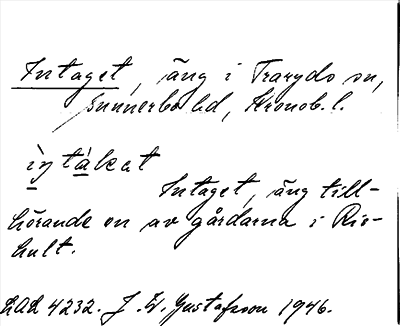 Intaget, äng i Traryds sn,
Sunnerbo hd, Kronob. l.
ìntàkat
Intaget, äng till-
hörande en av gårdarna i Ris-
hult.
4232. J. W. Gustafsson 1946.